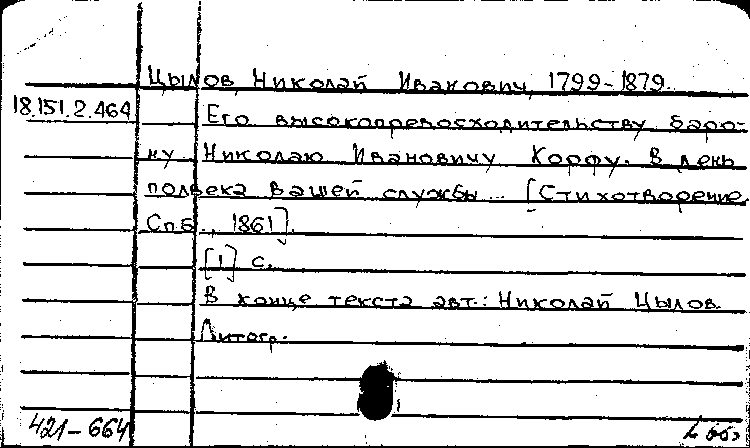 Цылов, Николай Иванович, 1799-1879.
18.151.2.464 Его высокопревосходительству баро-
ну Николаю Ивановичу Корфу. В день
полвека Вашей службы... [Стихотворение.
Спб., 1861].
[1] с.
В конце текста авт.: Николай Цылов.
Литогр.
421-664